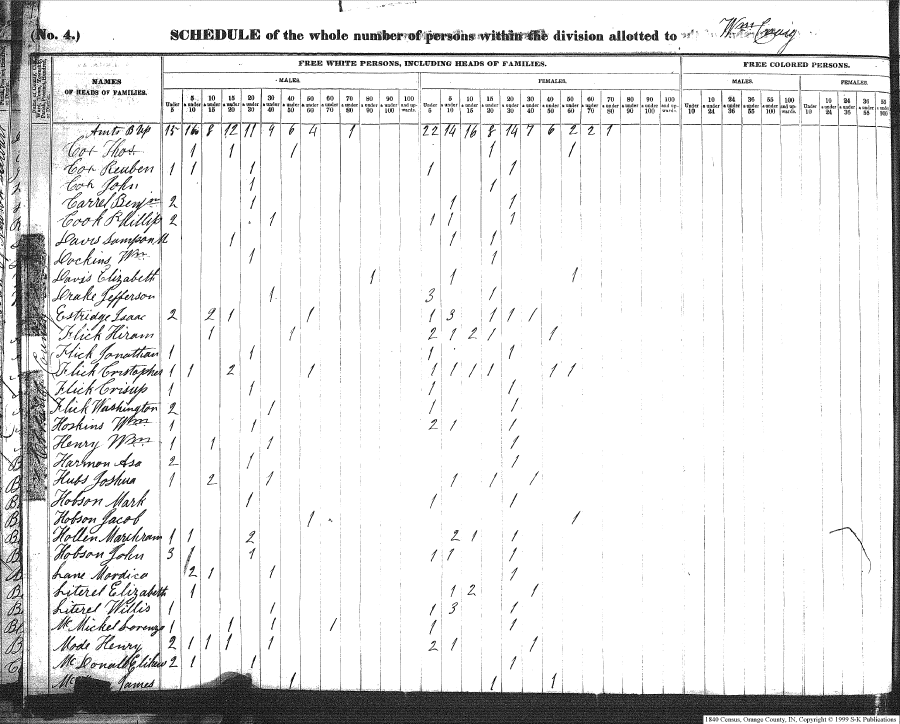 (No. 4.) SCHEDULE of the whole number of persons within the division allotted to Wm Craig
NAMES OF HEADS OF FAMILIES.
FREE WHITE PERSONS, INCLUDING HEADS OF FAMILIES.
FREE COLORED PERSONS.
MALES. FEMALES. MALES. FEMALES.
Under 5 5 & under 10 10 & under 15 15 & under 20 20 & under 30 30 & under 40 40 & under 50 50 & under 60 60 & under 70 70 & under 80 80 & under 90 90 & under 100 100 and up-wards.
Under 5 5 & under 10 10 & under 15 15 & under 20 20 & under 30 30 & under 40 40 & under 50 50 & under 60 60 & under 70 70 & under 80 80 & under 90 90 & under 100 100 and up-wards.
Under 10 10 & under 24 24 & under 36 36 & under 55 55 & under 100 100 and up-wards.
Under 10 10 & under 24 24 & under 36 36 & under 55 55 & under 100
Amt B Up 15 16 8 12 11 9 6 4 1 22 14 16 8 14 7 6 2 2 1
Cox Thos 1 1 1 1 1
Cox Reuben 1 1 1 1 1
Cox John 1 1
Carrel Benjn 2 1 1 1
Cook Phillip 2 1 1 1 1
Davis Sampson M 1 1 1
Dockins Wm 1 1
Davis Elizabeth 1 1 1
Drake Jefferson 1 3 1
Estridge Isaac 2 2 1 1 1 3 1 1 1
Flick Hiram 1 1 2 1 2 1 1
Flick Jonathan 1 1 1 1
Flick Cristopher 1 1 2 1 1 1 1 1 1 1
Flick Crisup 1 1 1 1
Flick Washington 2 1 1 1
Hoskins Wm 1 1 2 1 1
Henry Wm 1 1 1 1
Harmon Asa 2 1 1
Hubs Joshua 1 2 1 1 1 1
Hobson Mark 1 1 1
Hobson Jacob 1 1
Hollen Marikram 1 1 2 2 1 1
Hobson John 3 1 1 1 1 1
Lane Mordica 2 1 1 1
Literel Elizabeth 1 1 2 1
Literel Willis 1 1 1 3 1
McMickel Lorenzo 1 1 1 1 1 1
Mode Henry 2 1 1 1 1 2 1 1
McDonald Elihu 2 1 1 1
Mc James 1 1 1
1840 Census, Orange County, IN, Copyright © 1999 S-K Publications